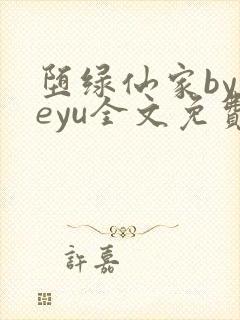 堕绿仙家by
eyu全文免費
許嘉